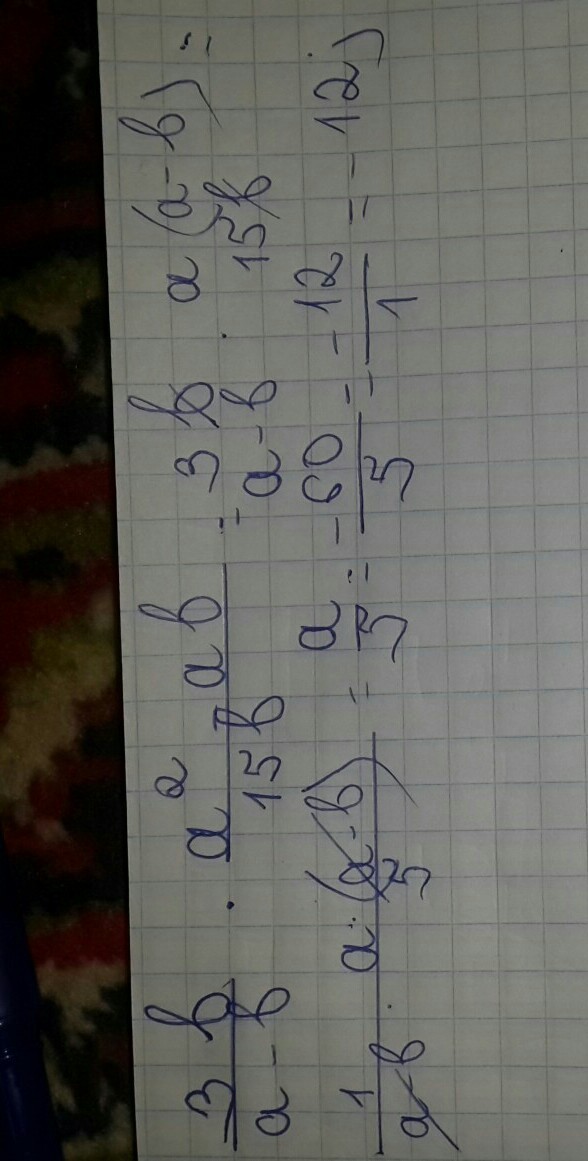 3b/(a-b) · (a² ab)/15b = 3b/(a-b) · a(a-b)/15b =
1/(a-b) · a·(a-b)/5 = a/5 = -60/5 = -12/1 = -12)